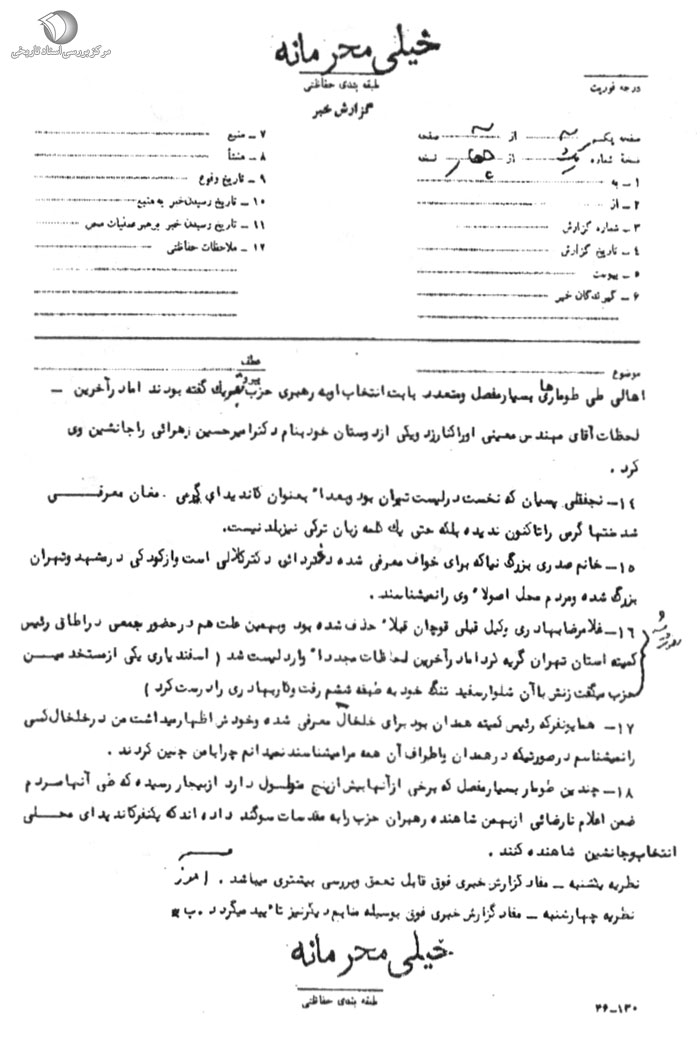 مرکز بررسی اسناد تاریخی
خیلی محرمانه
طبقه بندی حفاظتی
درجه فوریت
گزارش خبر
صفحه یکم از صفحه
نسخهٔ شماره یک از چهار نسخه
۱ ــ به
۲ ــ از
۳ ــ شماره گزارش
۴ ــ تاریخ گزارش
۵ ــ پیوست
۶ ــ گیرندگان خبر
۷ ــ منبع
۸ ــ منشأ
۹ ــ تاریخ وقوع
۱۰ ــ تاریخ رسیدن خبر به منبع
۱۱ ــ تاریخ رسیدن خبر به رهبر عملیات
۱۲ ــ ملاحظات حفاظتی
موضوع
عطف
پیرو
اهالی طی طومارهای بسیار مفصل و متعدد بابت انتخاب او به رهبری حزب تبریك گفته بودند اما در آخرین ــ
لحظات آقای مهندس معینی او را کنار زد و یکی از دوستان خود بنام دکتر امیرحسین زهرائی را جانشین وی
کرد .
۱۴ــ نجفقلی پسیان که نخست در لیست تهران بود و بعداً بعنوان کاندیدای گرمی . مغان معرفــــی
شد نه تنها گرمی را تاکنون ندیده بلکه حتی یك کلمه زبان ترکی نیز بلد نیست.
۱۵ــ خانم صدری بزرگ نیا که برای خواف معرفی شده دختر دائی دکتر کلالی است و از کودکی در مشهد و تهران
بزرگ شده و مردم محل اصولاً وی را نمیشناسند .
۱۶ــ غلامرضا بهادری وکیل قبلی قوچان قبلاً حذف شده بود و بهمین علت هم در حضور جمعی در اطاق رئیس
کمیته استان تهران گریه کرد اما در آخرین لحظات مجدداً وارد لیست شد ( اسفندیاری یکی از مستخدمیــن
حزب میگفت زنش با آن شلوار سفید تنگ خود به طبقه ششم رفت و کار بهادری را درست کرد )
۱۷ــ همایونفر که رئیس کمیته همدان بود برای خلخال معرفی شده و خودش اظهار میداشت من در خلخال کسی
را نمیشناسم در صورتیکه در همدان یا اطراف آن همه مرا میشناسند نمیدانم چرا با من چنین کردند .
۱۸ــ چندین طومار بسیار مفصل که برخی از آنها بیش از پنج متر طول دارد از بیجار رسیده که طی آنها مردم
ضمن اعلام نارضائی از بهمن شاهنده رهبران حزب را به مقدسات سوگند داده اند که یکنفر کاندیدای محــلی
انتخاب و جانشین شاهنده کنند .
نظریه یکشنبه ــ مفاد گزارش خبری فوق قابل تعمق و بررسی بیشتری میباشد .
نظریه چهارشنبه ــ مفاد گزارش خبری فوق بوسیله منابع دیگر نیز تأیید میگردد .
خیلی محرمانه
طبقه بندی حفاظتی
۲۶ــ۱۳۰